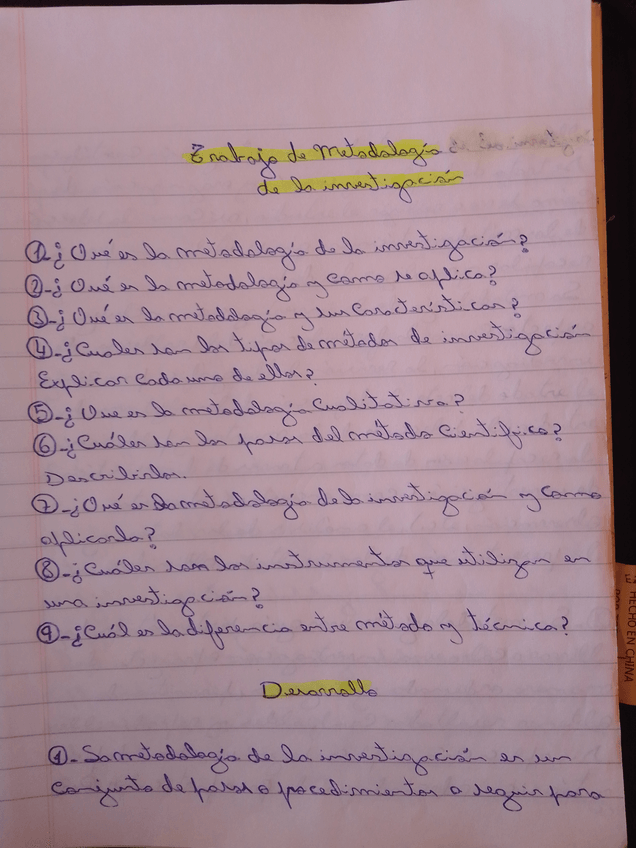 Trabajo de Metodología
de la investigación
1-¿Qué es la metodología de la investigación?
2-¿Qué es la metodología y como se aplica?
3-¿Qué es la metodología y sus características?
4-¿Cuales son los tipos de métodos de investigación
Explicar cada uno de ellos?
5-¿Que es la metodología Cualitativa?
6-¿Cuáles son los pasos del método Científico?
Describirlos.
7-¿Qué es la metodología de la investigación y como
aplicarla?
8-¿Cuáles son los instrumentos que utilizan en
una investigación?
9-¿Cuál es la diferencia entre método y técnica?
Desarrollo
1- La metodología de la investigación es un
conjunto de pasos o procedimientos a seguir para
HECHO EN CHINA